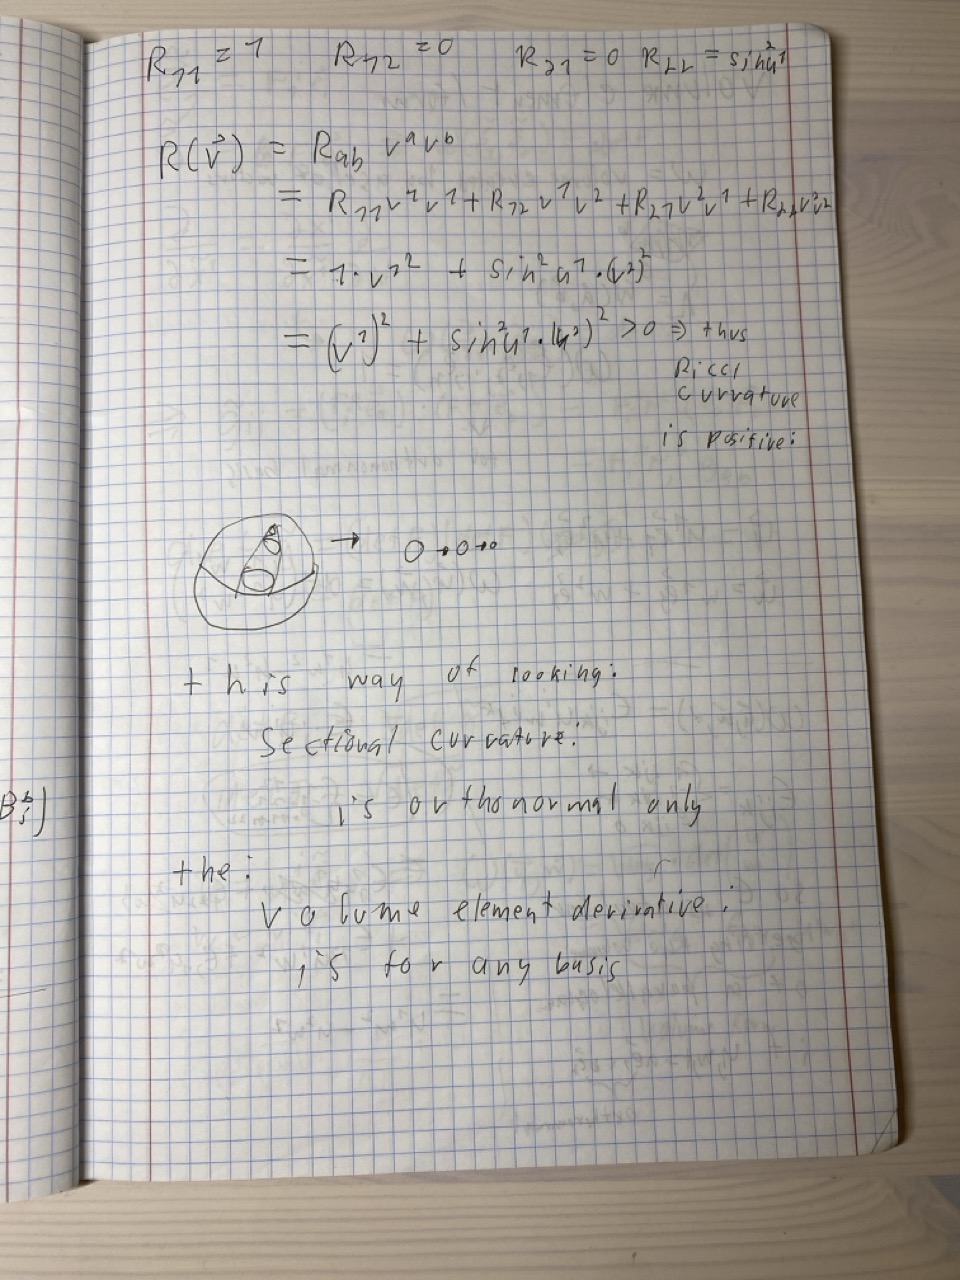 R₁₁ = 1   R₁₂ = 0   R₂₁ = 0   R₂₂ = sin²u¹
R(v⃗) = R_ab vᵃvᵇ
= R₁₁v¹v¹ + R₁₂v¹v² + R₂₁v²v¹ + R₂₂v²v²
= 1·v¹² + sin²u¹·(v²)²
= (v¹)² + sin²u¹·(v²)² > 0 ⇒ thus
Ricci
curvature
is positive:
→ O→o→o
this way of looking:
Sectional curvature:
is orthonormal only
the:
volume element derivative:
is for any basis